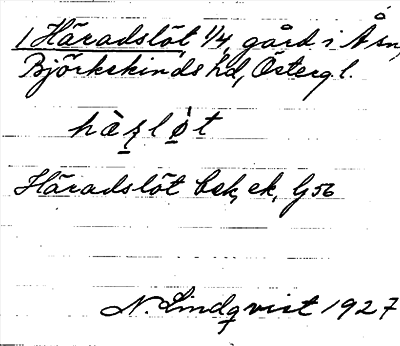 1 Häradslöt, 1/4, gård i Å sn,
Björkekinds hd, Östergl.
hàʒ̱lø̱̀t
Häradslöt bek, ek, G 56
N. Lindqvist 1927